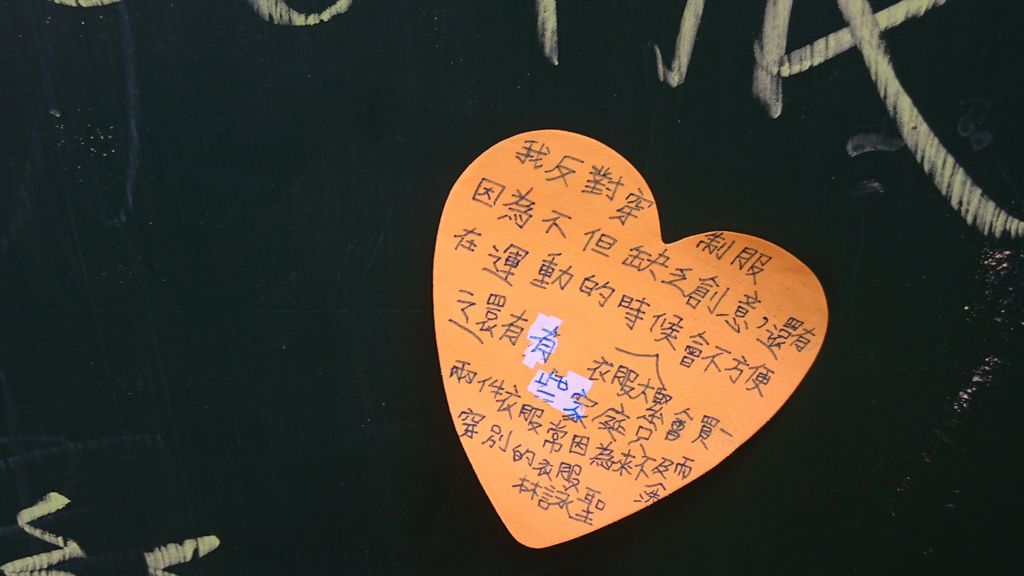 我反對穿制服
因為不但缺乏創意,還有
在運動的時候會不方便
還有有 衣服大概會買一
些家庭只
兩件衣服常因為來不及而
穿別的衣服
林詠聖